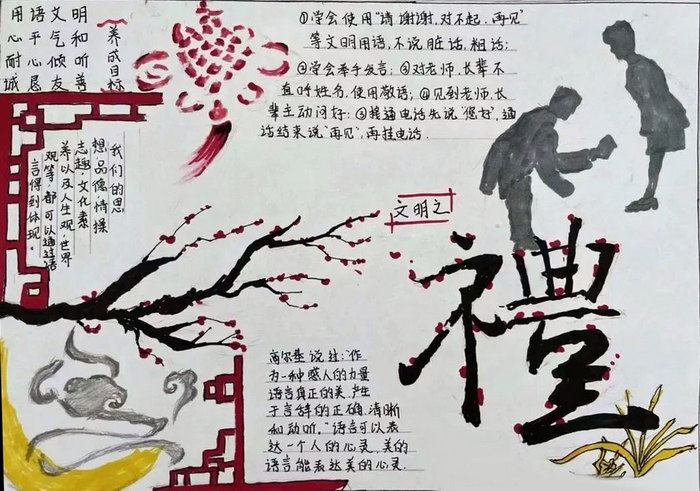 养成目标
用语文明
心平气和
耐心倾听
诚恳友善
①学会使用"请,谢谢,对不起,再见"
等文明用语,不说脏话,粗话;
②学会举手发言;③对老师,长辈不
直呼姓名,使用敬语;④见到老师,长
辈主动问好;⑤接通电话先说"您好",通
话结束说"再见",再挂电话.
我们的思
想品德情操
志趣,文化素
养以及人生观,世界
观等,都可以通过语
言得到体现。
文明之
禮
高尔基说过:"作
为一种感人的力量
语言真正的美,产生
于言辞的正确,清晰
和动听,"语言可以表
达一个人的心灵,美的
语言能表达美的心灵.